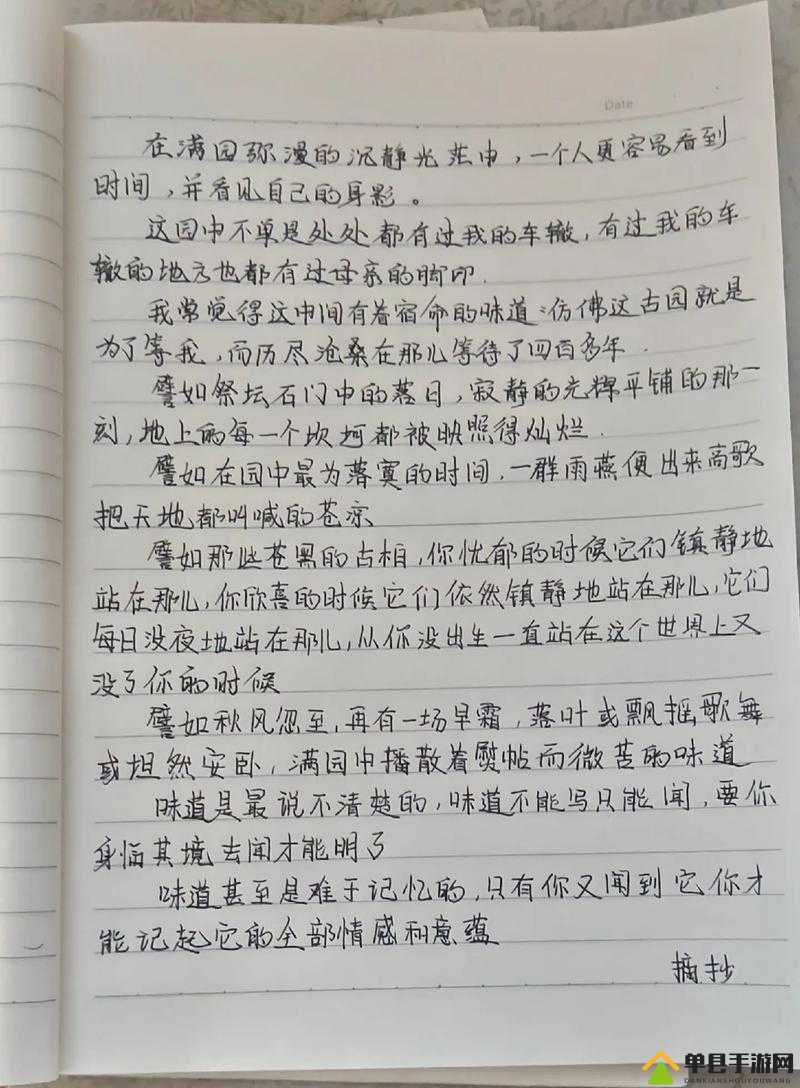 Date
在满园弥漫的沉静光茫中，一个人更容易看到
时间，并看见自己的身影。
这园中不单是处处都有过我的车辙，有过我的车
辙的地方也都有过母亲的脚印.
我常觉得这中间有着宿命的味道：仿佛这古园就是
为了等我，而历尽沧桑在那儿等待了四百多年.
譬如祭坛石门中的落日，寂静的光辉平铺的那一
刻，地上的每一个坎坷都被映照得灿烂.
譬如在园中最为落寞的时间，一群雨燕便出来高歌
把天地都叫喊的苍凉
譬如那些苍黑的古柏，你忧郁的时候它们镇静地
站在那儿，你欣喜的时候它们依然镇静地站在那儿，它们
每日没夜地站在那儿，从你没出生一直站在这个世界上又
没了你的时候
譬如秋风忽至，再有一场早霜，落叶或飘摇歌舞
或坦然安卧，满园中播散着熨帖而微苦的味道
味道是最说不清楚的，味道不能写只能闻，要你
身临其境去闻才能明了
味道甚至是难于记忆的，只有你又闻到它你才
能记起它的全部情感和意蕴
摘抄
单县手游网
DANXIANSHOUYOUWANG